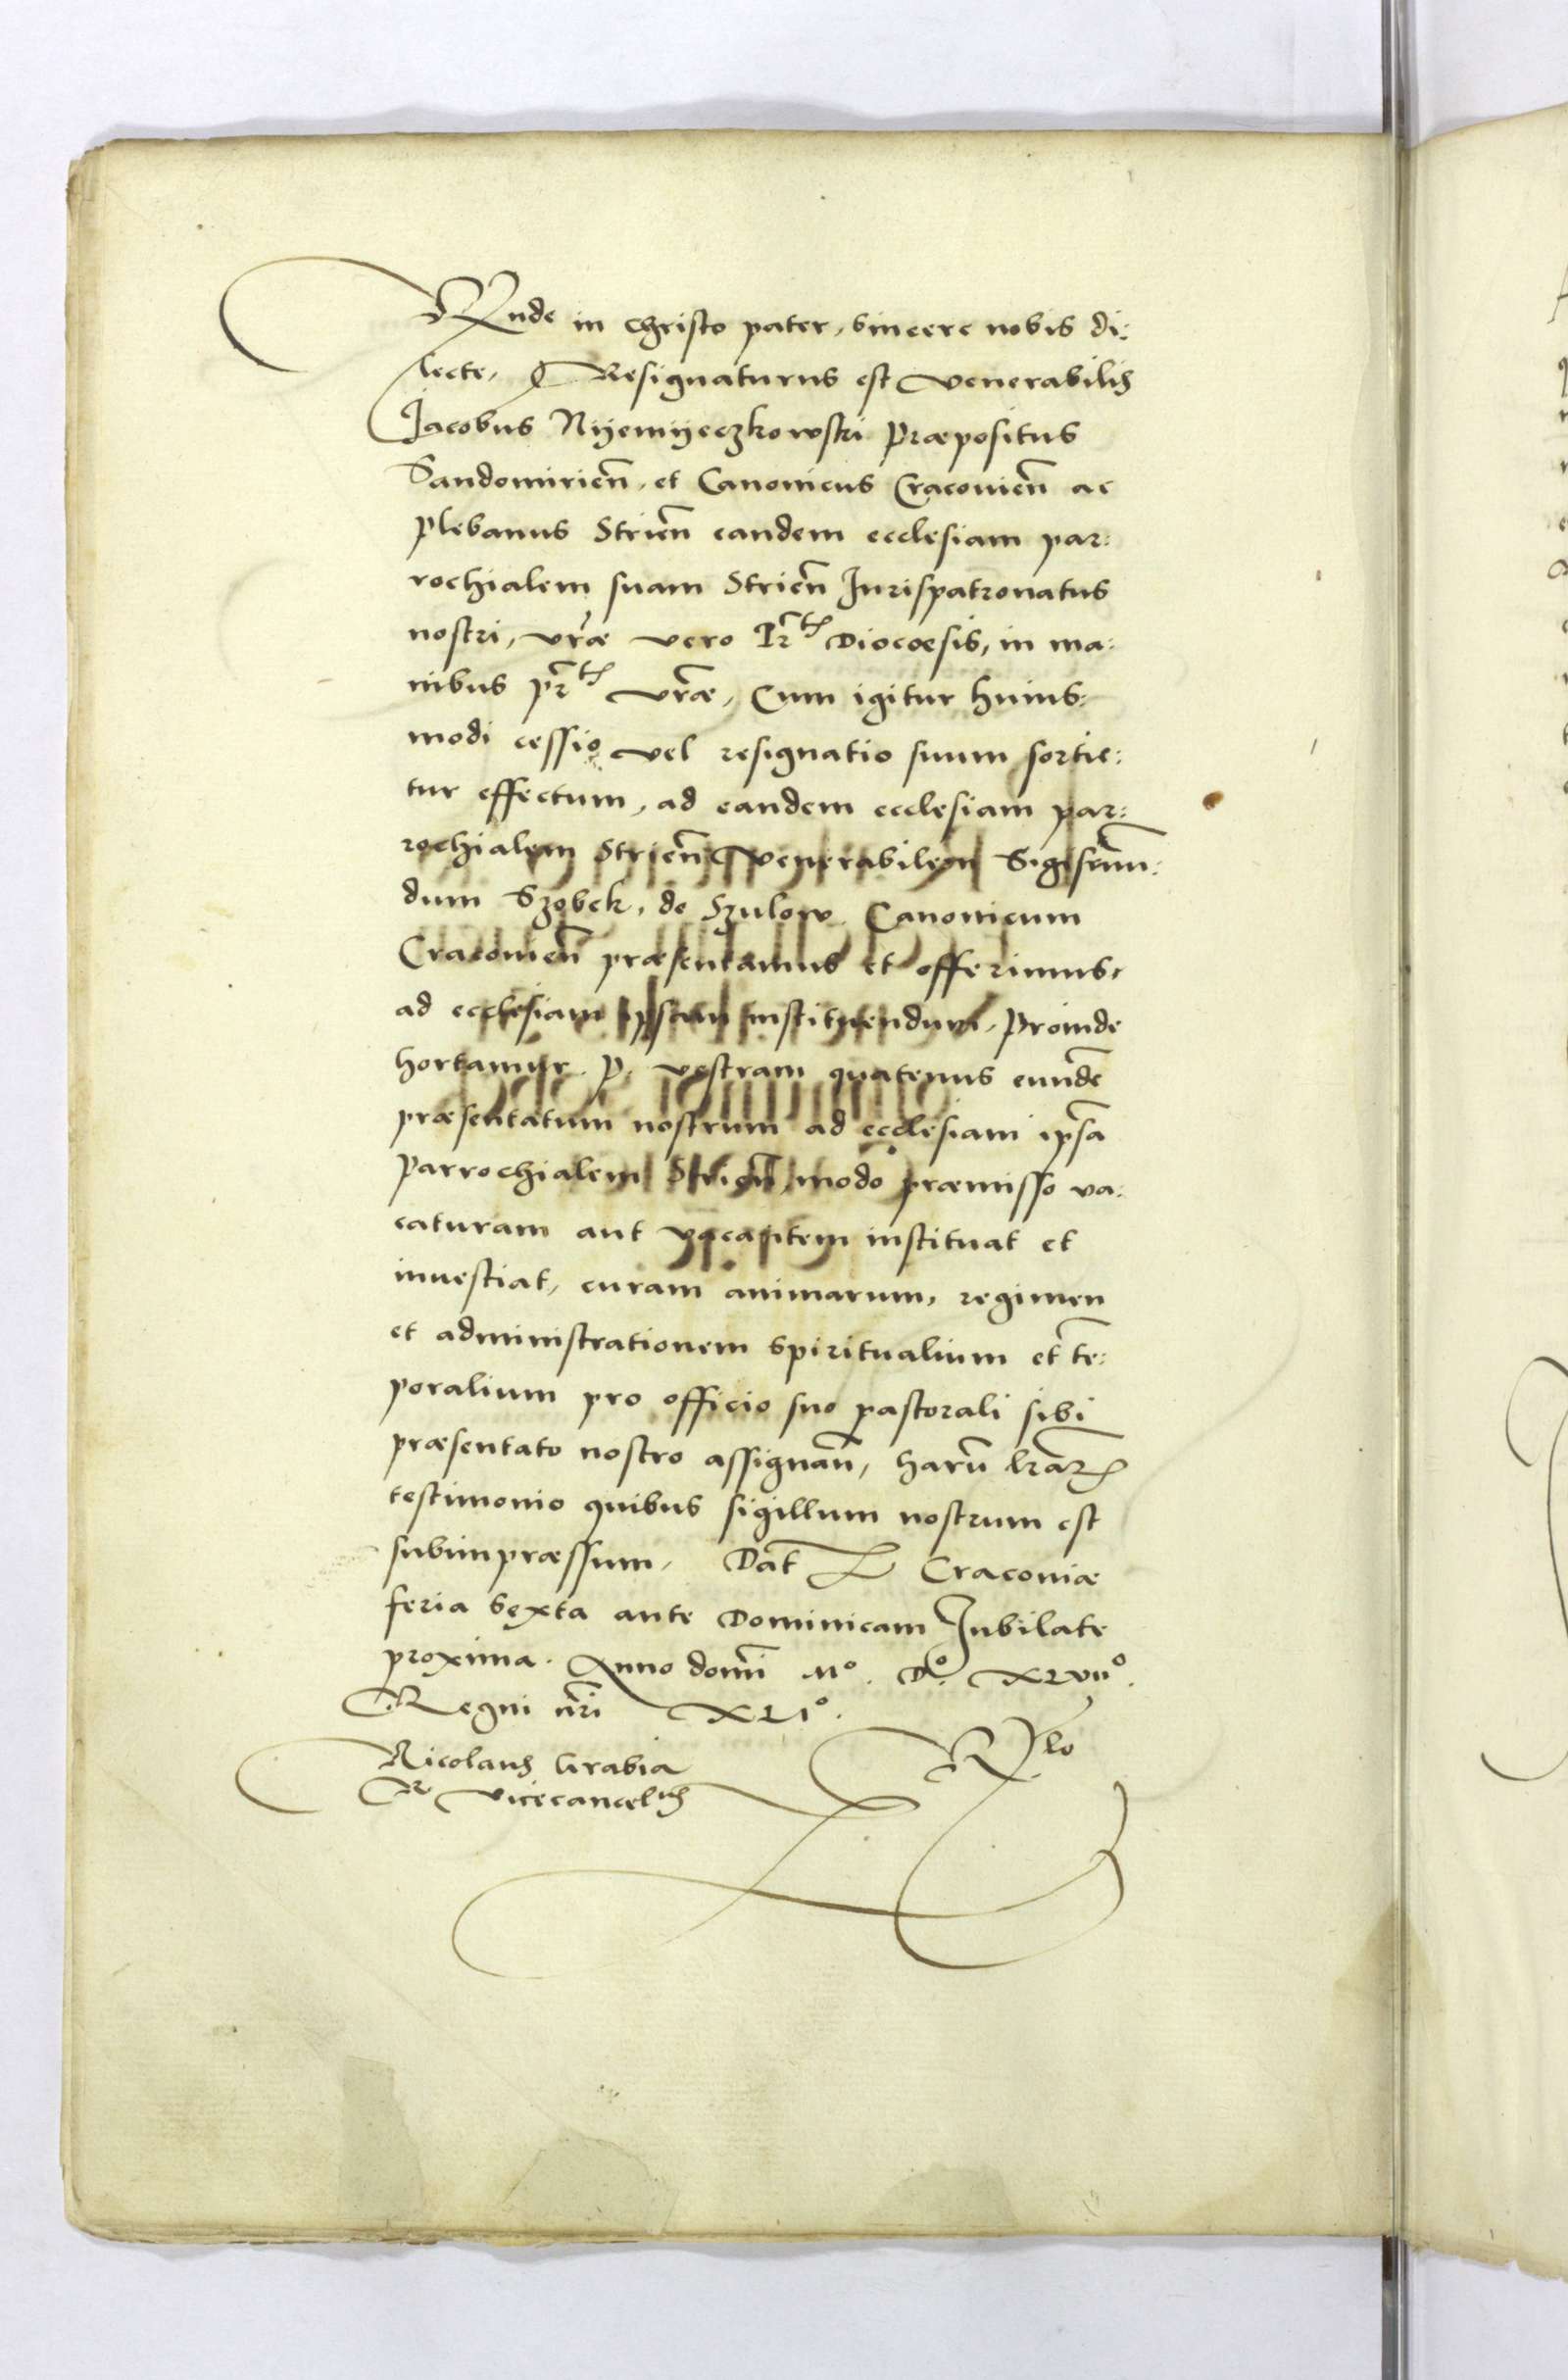 Rnde in christo pater, sincere nobis di:
lecte, Resignaturus est venerabilis
Jacobus Nyemyeczkowski Præpositus
Sandomirien̄, et Canonicus Cracovien̄ ac
plebanus Strien̄ eandem ecclesiam par:
rochialem suam Strien̄ Jurispatronatus
nostri, vr̄æ vero Pr̄tis Dioecesis, in ma:
nibus pr̄tis vr̄æ, Cum igitur huius:
modi cessio vel resignatio suum sortie:
tur effectum, ad eandem ecclesiam par:
rochialem Strien̄ venerabilem Sigismun̄:
dum Szobek, de Szulow Canonicum
Cracovien̄ præsentamus et offerimus,
ad ecclesiam ipsam instituendum, Proinde
hortamur. P. vestram quatenus eundē
præsentatum nostrum ad ecclesiam ipsā
Parrochialem Strien̄, modo præmisso va:
caturam aut vacantem instituat et
investiat, curam animarum, regimen
et administrationem spiritualium et tē:
poralium pro officio suo pastorali sibi
præsentato nostro assignan̄, harū lr̄arꝝ
testimonio quibus sigillum nostrum est
subimpræssum, Dat̄ Cracoviæ
feria sexta ante Dominicam Jubilate
proxima. Anno domī Mº. Dº. XLVIIº.
Regni nr̄i XLIº.
Nicolaus Grabia
R Vicecancelius